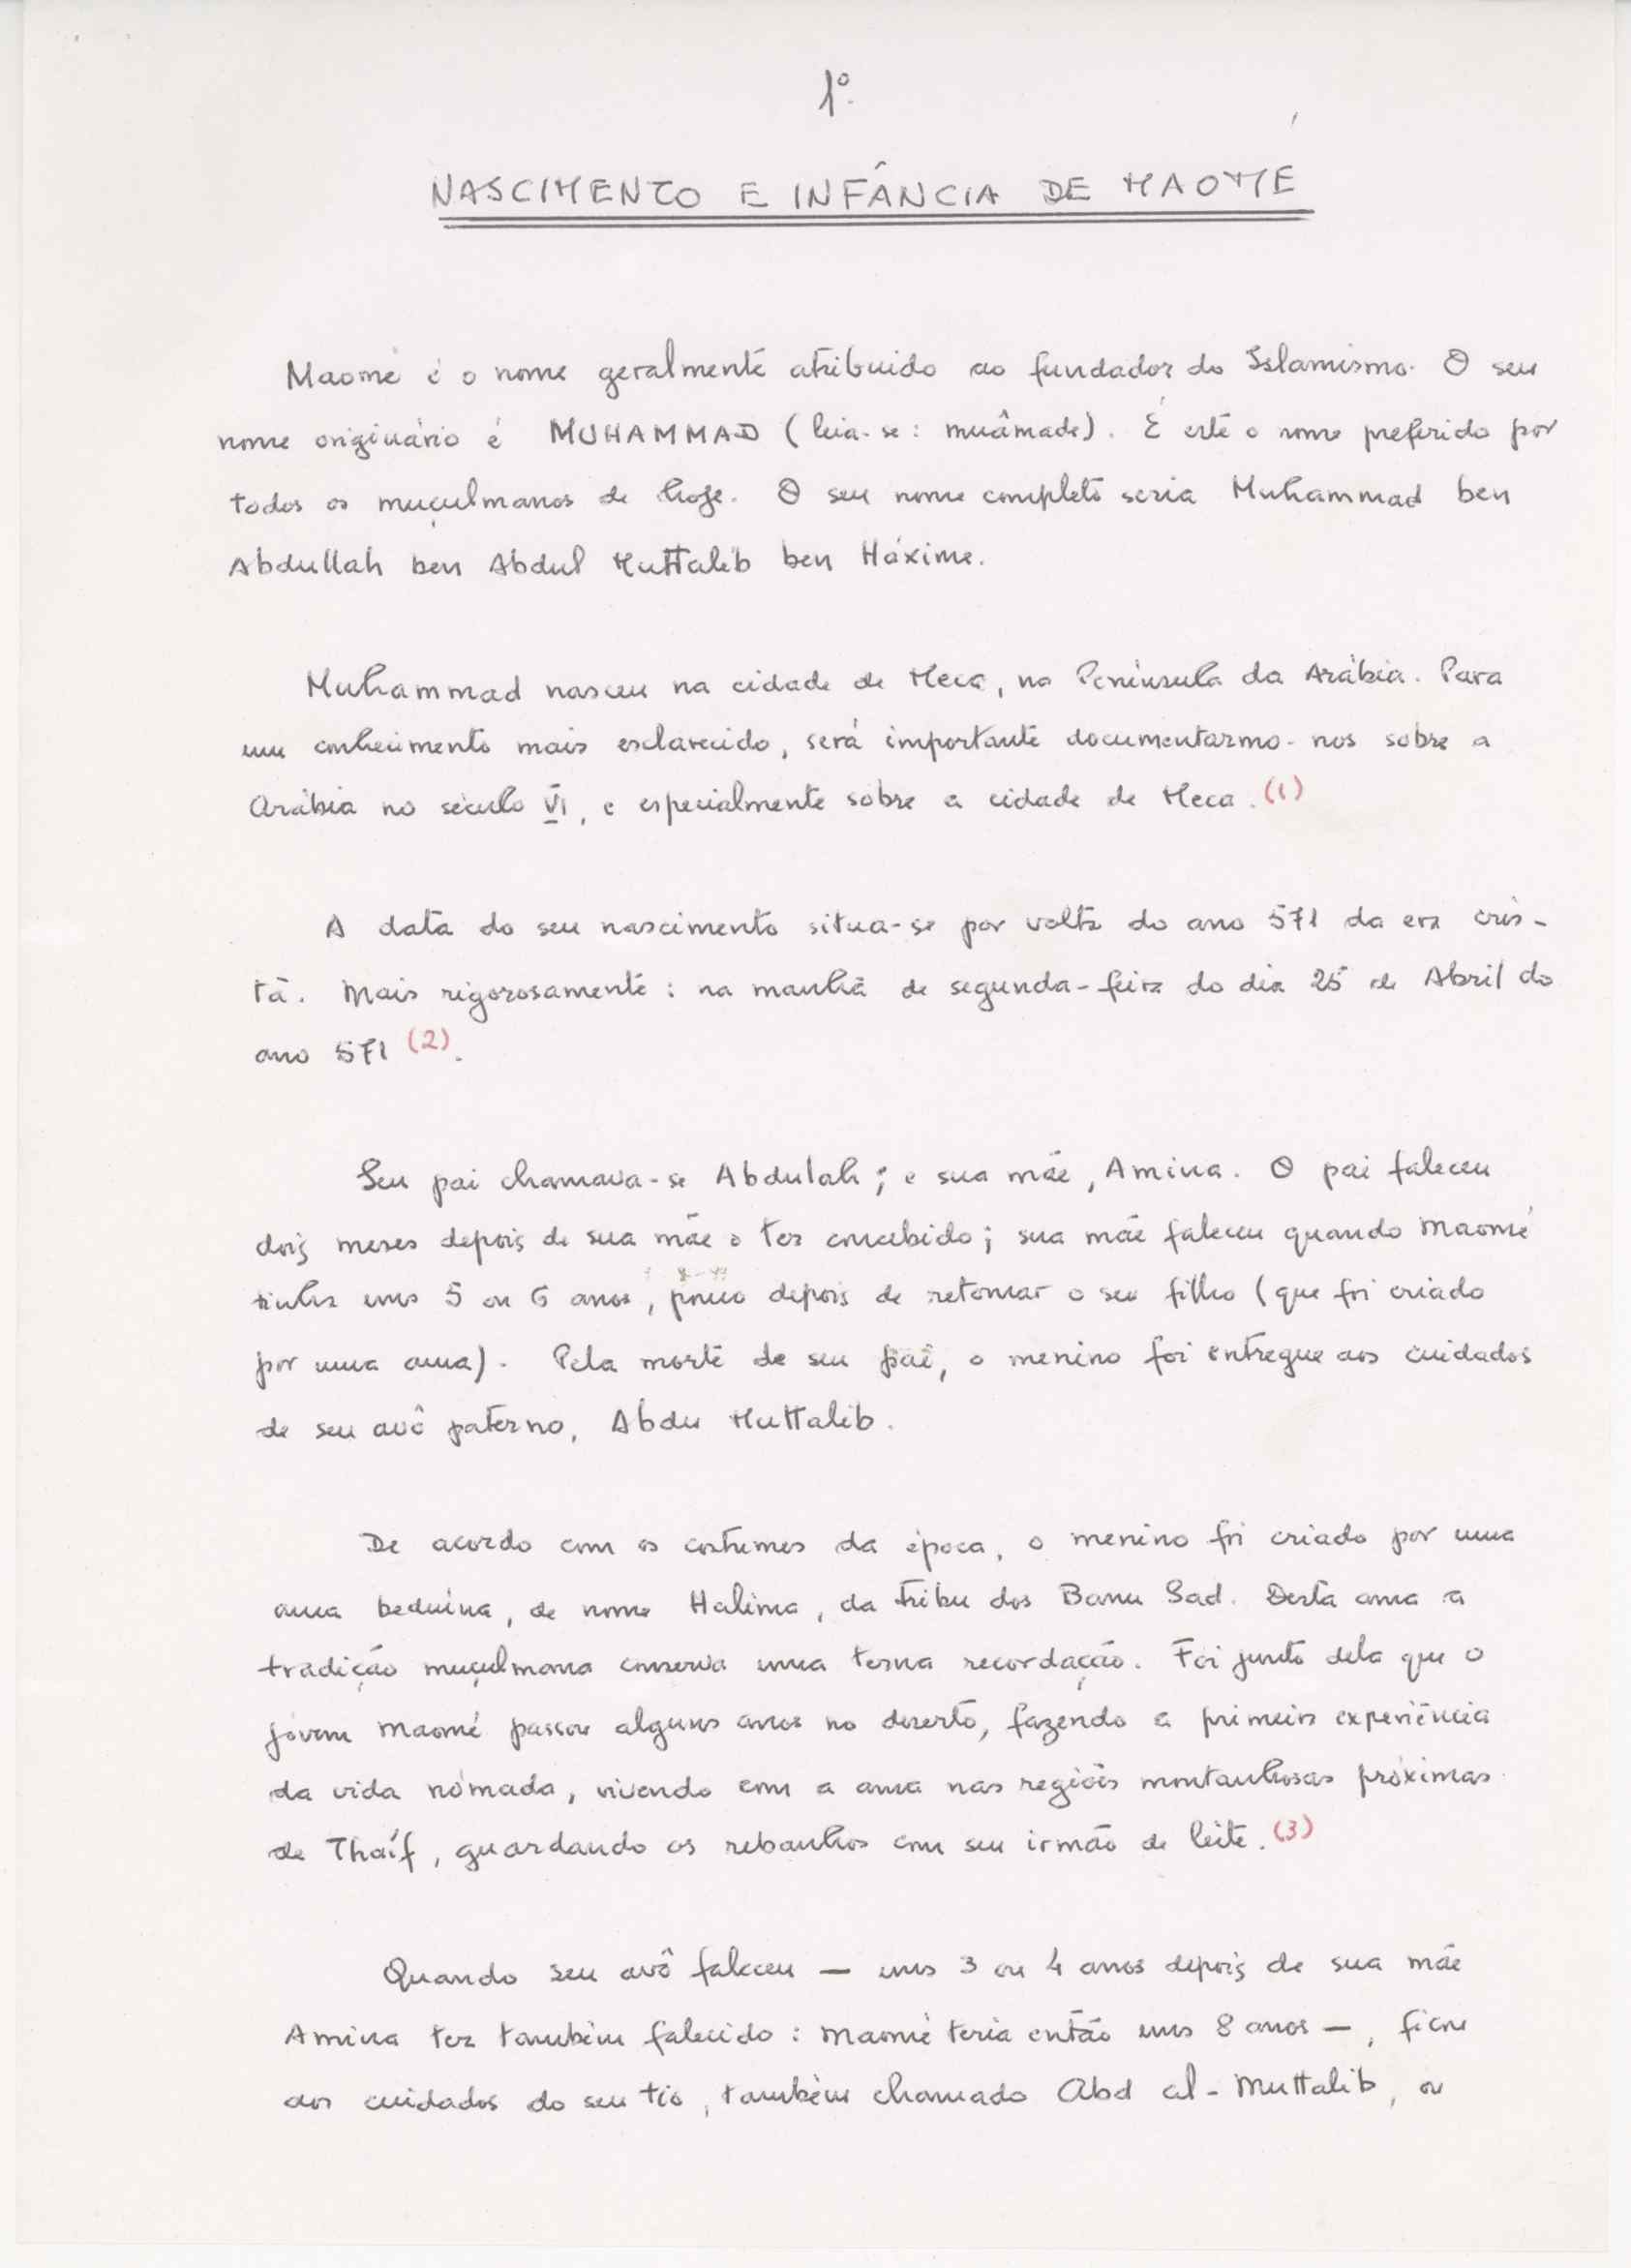 1º.
NASCIMENTO E INFÂNCIA DE MAOMÉ
Maomé é o nome geralmente atribuido ao fundador do Islamismo. O seu
nome originário é MUHAMMAD (leia-se: muâmade). É este o nome preferido por
todos os muçulmanos de hoje. O seu nome completo seria Muhammad ben
Abdullah ben Abdul Muttalib ben Háxime.
Muhammad nasceu na cidade de Meca, na Península da Arábia. Para
um conhecimento mais esclarecido, será importante documentarmo-nos sobre a
Arábia no século VI, e especialmente sobre a cidade de Meca. (1)
A data do seu nascimento situa-se por volta do ano 571 da era cris-
tã. Mais rigorosamente: na manhã de segunda-feira do dia 25 de Abril do
ano 571 (2).
Seu pai chamava-se Abdulah; e sua mãe, Amina. O pai faleceu
dois meses depois de sua mãe o ter concebido; sua mãe faleceu quando Maomé
tinha uns 5 ou 6 anos, pouco depois de retomar o seu filho (que foi criado
por uma ama). Pela morte de seu pai, o menino foi entregue aos cuidados
de seu avô paterno, Abdu Muttalib.
De acordo com os costumes da época, o menino foi criado por uma
ama beduína, de nome Halima, da tribu dos Banu Sad. Desta ama a
tradição muçulmana conserva uma terna recordação. Foi junto dela que o
jóvem Maomé passou alguns anos no deserto, fazendo a primeira experiência
da vida nómada, vivendo com a ama nas regiões montanhosas próximas
de Thaíf, guardando os rebanhos com seu irmão de leite. (3)
Quando seu avô faleceu — uns 3 ou 4 anos depois de sua mãe
Amina ter também falecido: Maomé teria então uns 8 anos —, ficou
aos cuidados do seu tio, também chamado Abd al-Muttalib, ou